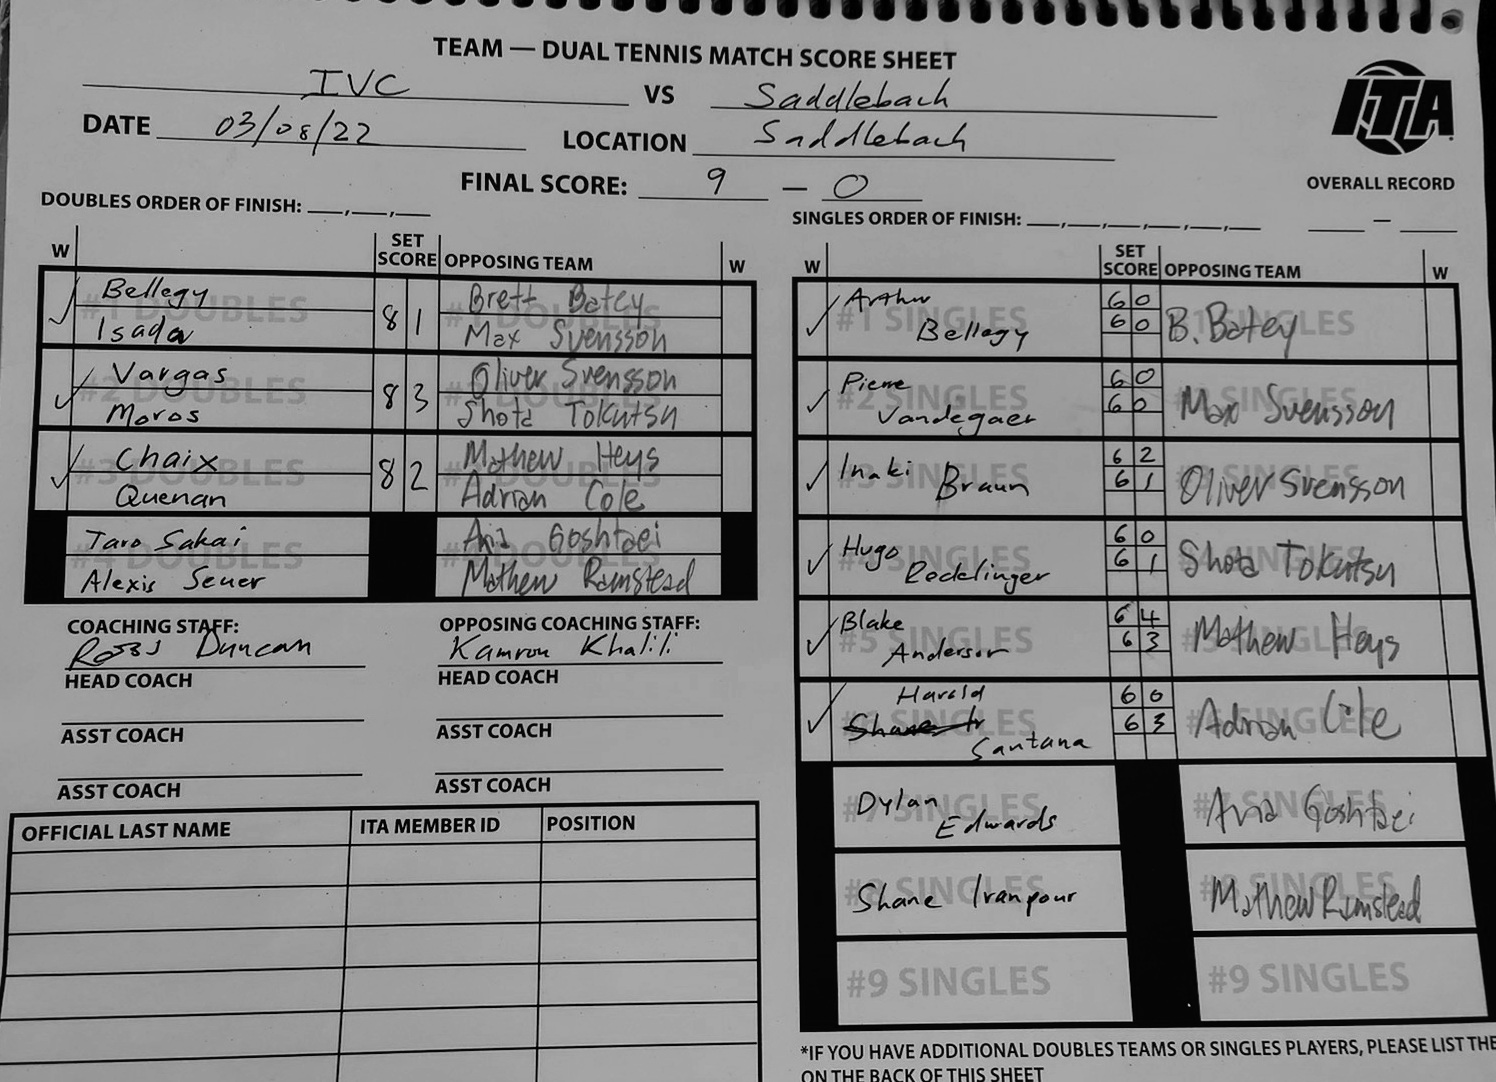 TEAM — DUAL TENNIS MATCH SCORE SHEET
IVC VS Saddleback
DATE 03/08/22 LOCATION Saddleback
ITA
FINAL SCORE: 9 — 0
OVERALL RECORD
DOUBLES ORDER OF FINISH: __,__,__
W SET SCORE OPPOSING TEAM W
#1 DOUBLES
Bellegy 8 1 Brett Batey
Isada Max Svensson
#2 DOUBLES
Vargas 8 3 Oliver Svensson
Moros Shota Tokutsu
#3 DOUBLES
Chaix 8 2 Mathew Heys
Quenan Adrian Cole
#4 DOUBLES
Taro Sakai Aria Goshtaei
Alexis Seuer Mathew Ramstead
COACHING STAFF: OPPOSING COACHING STAFF:
Ross Duncan Kamron Khalili
HEAD COACH HEAD COACH
ASST COACH ASST COACH
ASST COACH ASST COACH
OFFICIAL LAST NAME ITA MEMBER ID POSITION
SINGLES ORDER OF FINISH: __,__,__,__,__,__ __ — __
W SET SCORE OPPOSING TEAM W
#1 SINGLES
Arthur 6 0
Bellegy 6 0 B. Batey
#2 SINGLES
Pierre 6 0
Vandegaer 6 0 Max Svensson
#3 SINGLES
Inaki 6 2
Braun 6 1 Oliver Svensson
#4 SINGLES
Hugo 6 0
6 1 Shota Tokutsu
#5 SINGLES
Blake 6 4
Anderson 6 3 Mathew Heys
#6 SINGLES
Harald 6 0
Santana 6 3 Adrian Cole
#7 SINGLES
Dylan
Edwards Aria Goshtaei
#8 SINGLES
Shane Iranpour Mathew Ramstead
#9 SINGLES #9 SINGLES
*IF YOU HAVE ADDITIONAL DOUBLES TEAMS OR SINGLES PLAYERS, PLEASE LIST THE
ON THE BACK OF THIS SHEET